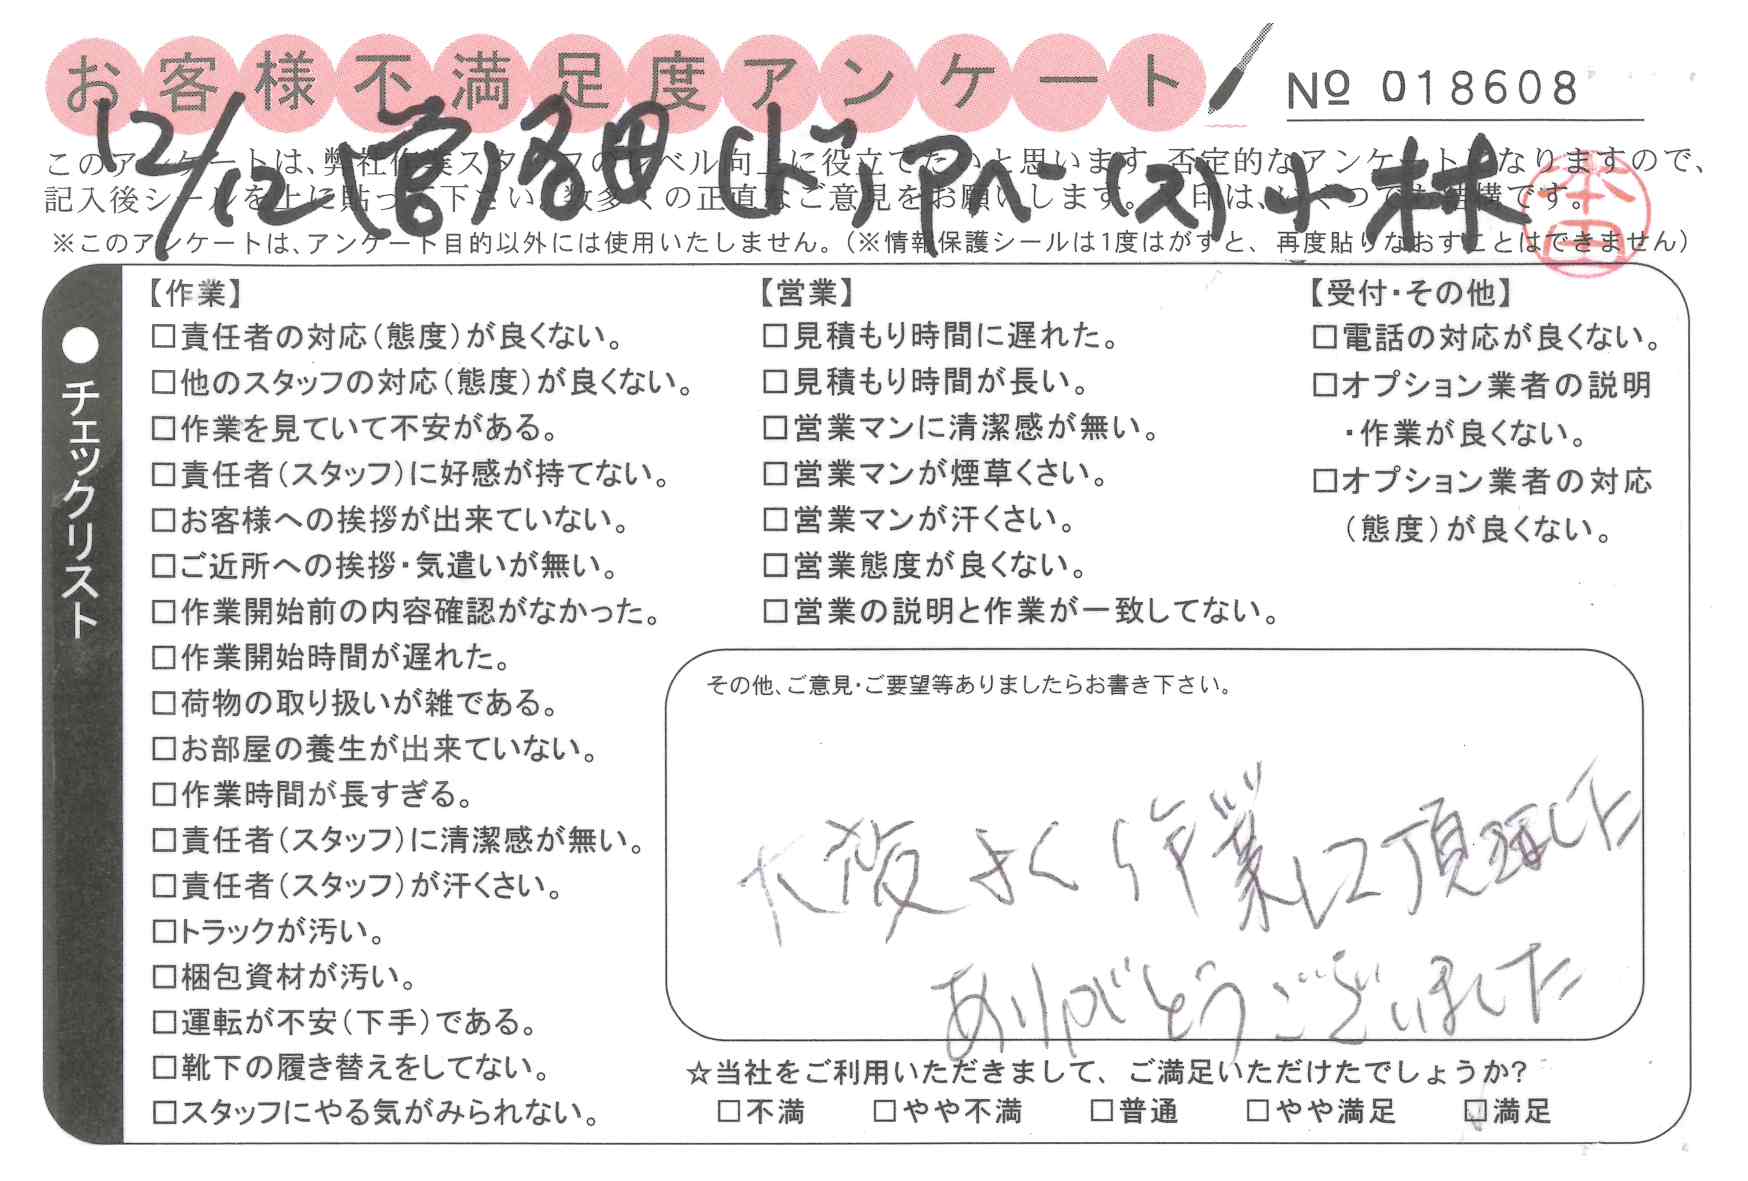 お客様不満足度アンケート
Nº 018608
12/12 (営)冨田 (ド)アベ (ス)小林
本田
このアンケートは、弊社作業スタッフのレベル向上に役立てたいと思います。否定的なアンケートになりますので、
記入後シールを上に貼って下さい。数多くの正直なご意見をお願いします。✓印は、いくつでも結構です。
※このアンケートは、アンケート目的以外には使用いたしません。（※情報保護シールは1度はがすと、再度貼りなおすことはできません）
●チェックリスト
【作業】
□責任者の対応（態度）が良くない。
□他のスタッフの対応（態度）が良くない。
□作業を見ていて不安がある。
□責任者（スタッフ）に好感が持てない。
□お客様への挨拶が出来ていない。
□ご近所への挨拶・気遣いが無い。
□作業開始前の内容確認がなかった。
□作業開始時間が遅れた。
□荷物の取り扱いが雑である。
□お部屋の養生が出来ていない。
□作業時間が長すぎる。
□責任者（スタッフ）に清潔感が無い。
□責任者（スタッフ）が汗くさい。
□トラックが汚い。
□梱包資材が汚い。
□運転が不安（下手）である。
□靴下の履き替えをしてない。
□スタッフにやる気がみられない。
【営業】
□見積もり時間に遅れた。
□見積もり時間が長い。
□営業マンに清潔感が無い。
□営業マンが煙草くさい。
□営業マンが汗くさい。
□営業態度が良くない。
□営業の説明と作業が一致してない。
【受付・その他】
□電話の対応が良くない。
□オプション業者の説明
・作業が良くない。
□オプション業者の対応
（態度）が良くない。
その他、ご意見・ご要望等ありましたらお書き下さい。
よく作業して頂きました
ありがとうございました
☆当社をご利用いただきまして、ご満足いただけたでしょうか？
□不満 □やや不満 □普通 □やや満足 ☑満足